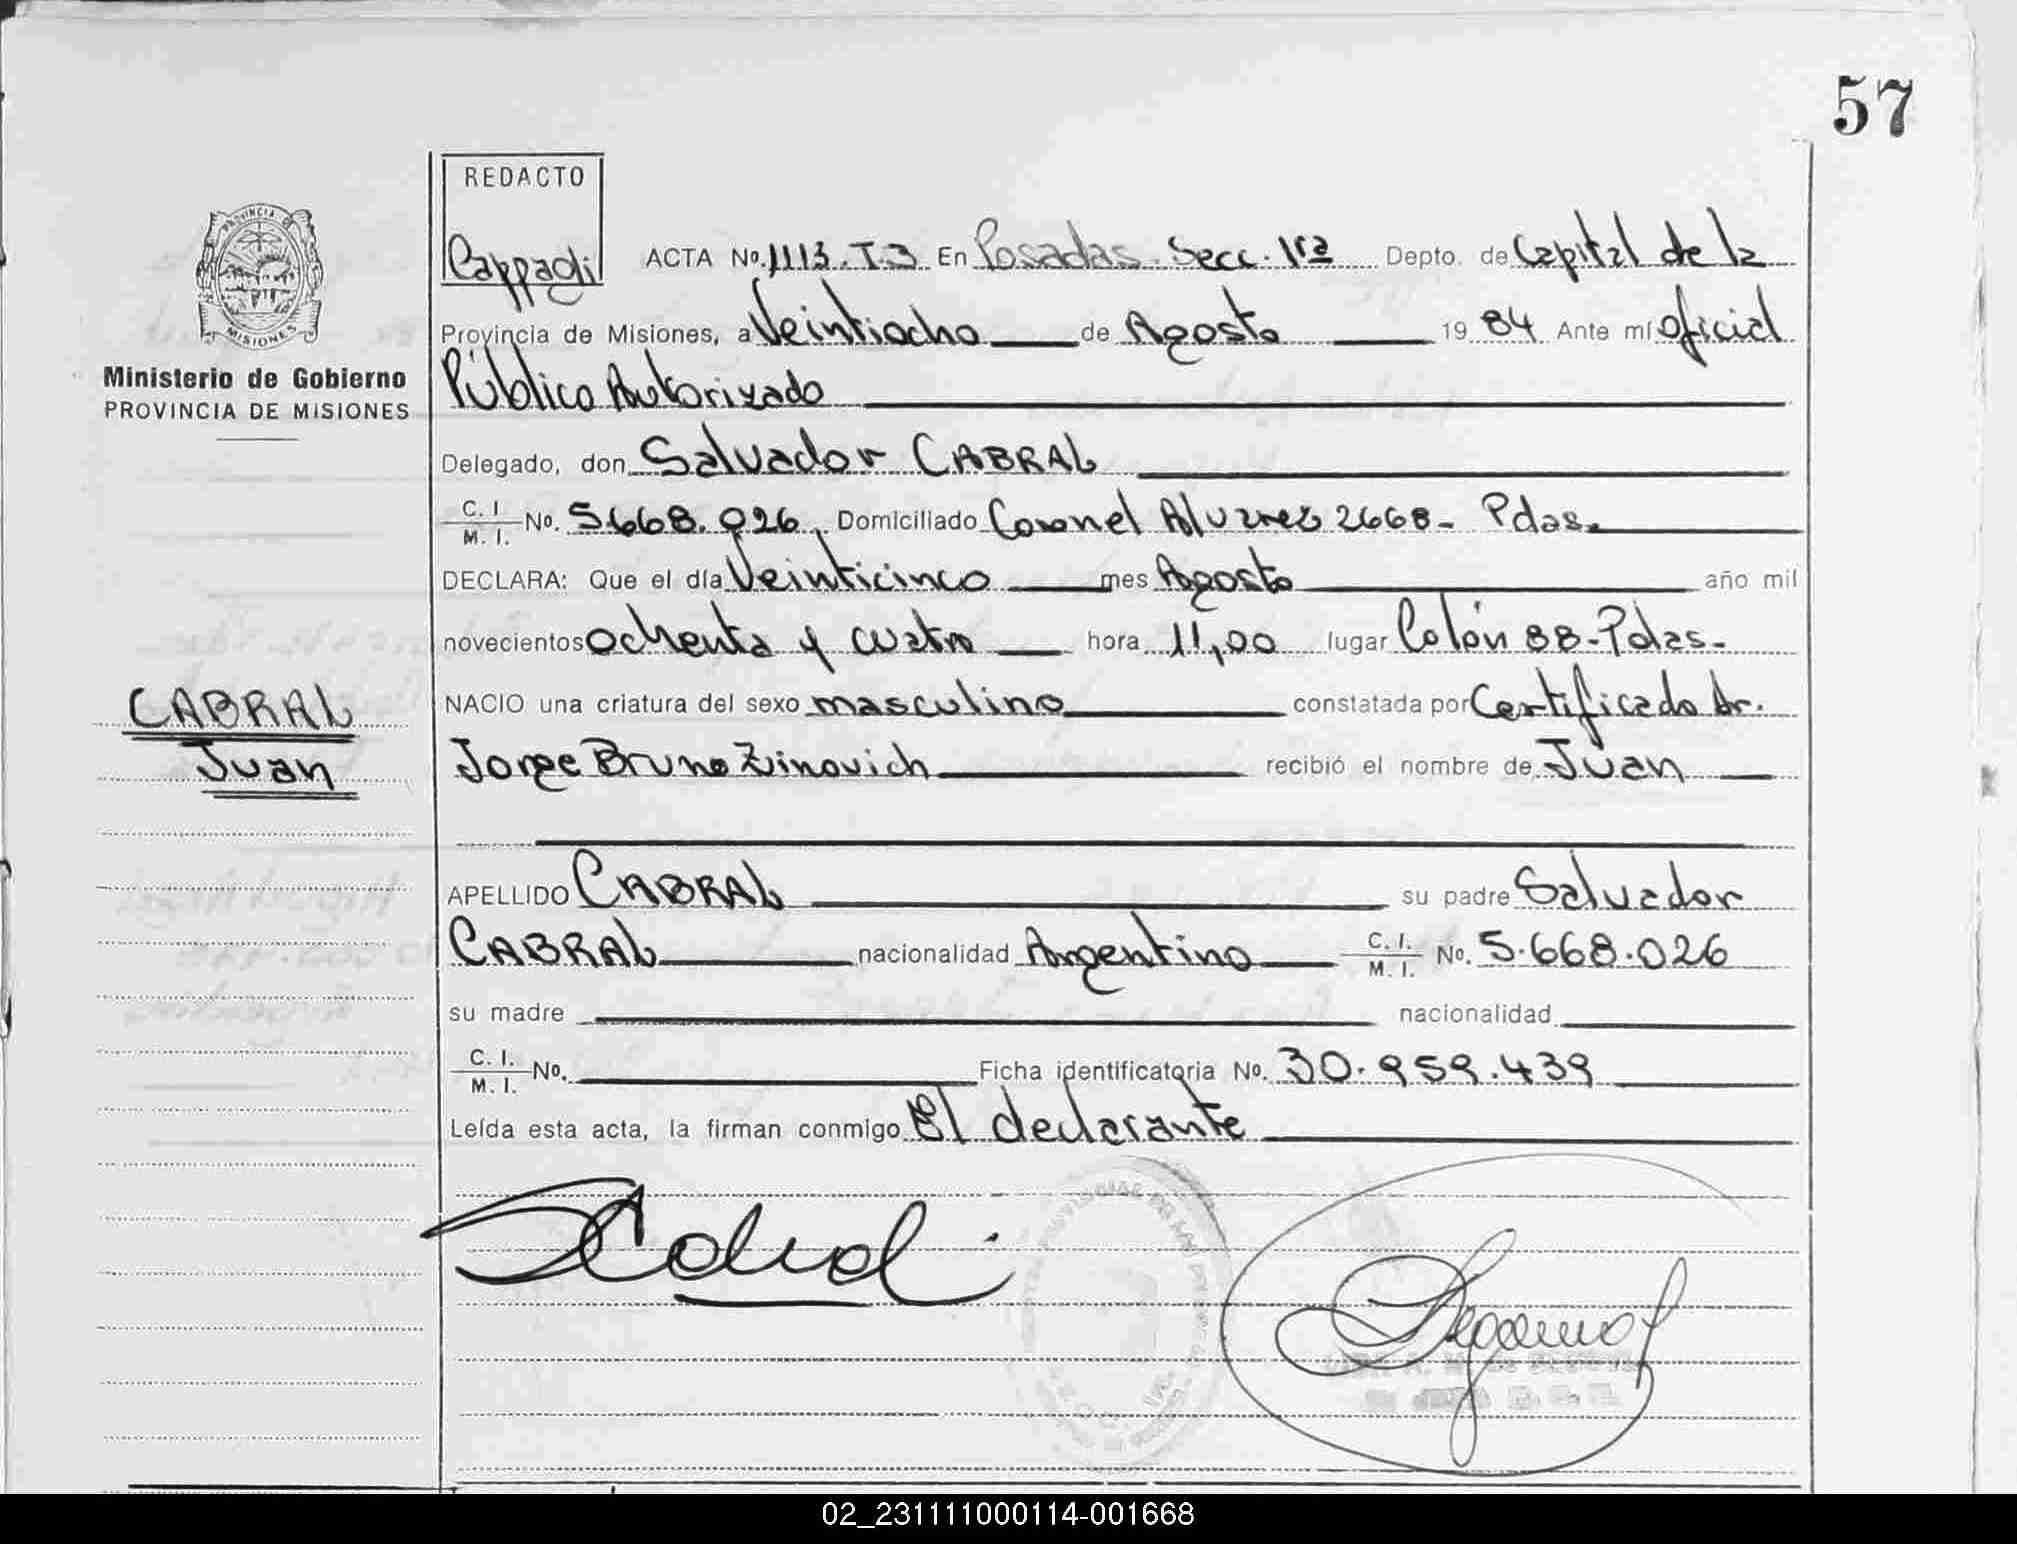 57
REDACTO
Cappagli
ACTA No. 1113. T.3 En Posadas. Secc. 1ra Depto. de Capital de la
Provincia de Misiones, a Veintiocho de Agosto 1984 Ante mí oficial
Público Autorizado
Delegado, don Salvador CABRAL
C. I. M. I. No. 5.668.026. Domiciliado Coronel Alvarez 2668- Pdas.
DECLARA: Que el día Veinticinco mes Agosto año mil
novecientos ochenta y cuatro hora 11,00 lugar Colón 88-Pdas-
NACIO una criatura del sexo masculino constatada por Certificado dr.
Jorge Bruno Zinovich recibió el nombre de Juan
APELLIDO CABRAL su padre Salvador
CABRAL nacionalidad Argentino C. I. M. I. No. 5.668.026
su madre nacionalidad
C. I. M. I. No. Ficha identificatoria No. 30.959.439
Leída esta acta, la firman conmigo El declarante
PROVINCIA DE MISIONES
Ministerio de Gobierno
PROVINCIA DE MISIONES
CABRAL
Juan
02_231111000114-001668